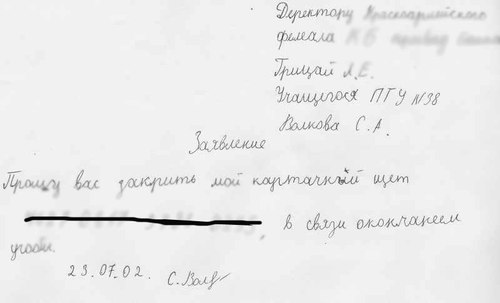 Директору Красноармейского
фелеала
Грицай А.Е.
Учащегося ПТУ №38
Волкова С.А.
Заявление
Прошу вас закрить мой картачный щет
в связи окончанеем
учобы.
23.07.02. С. Волк